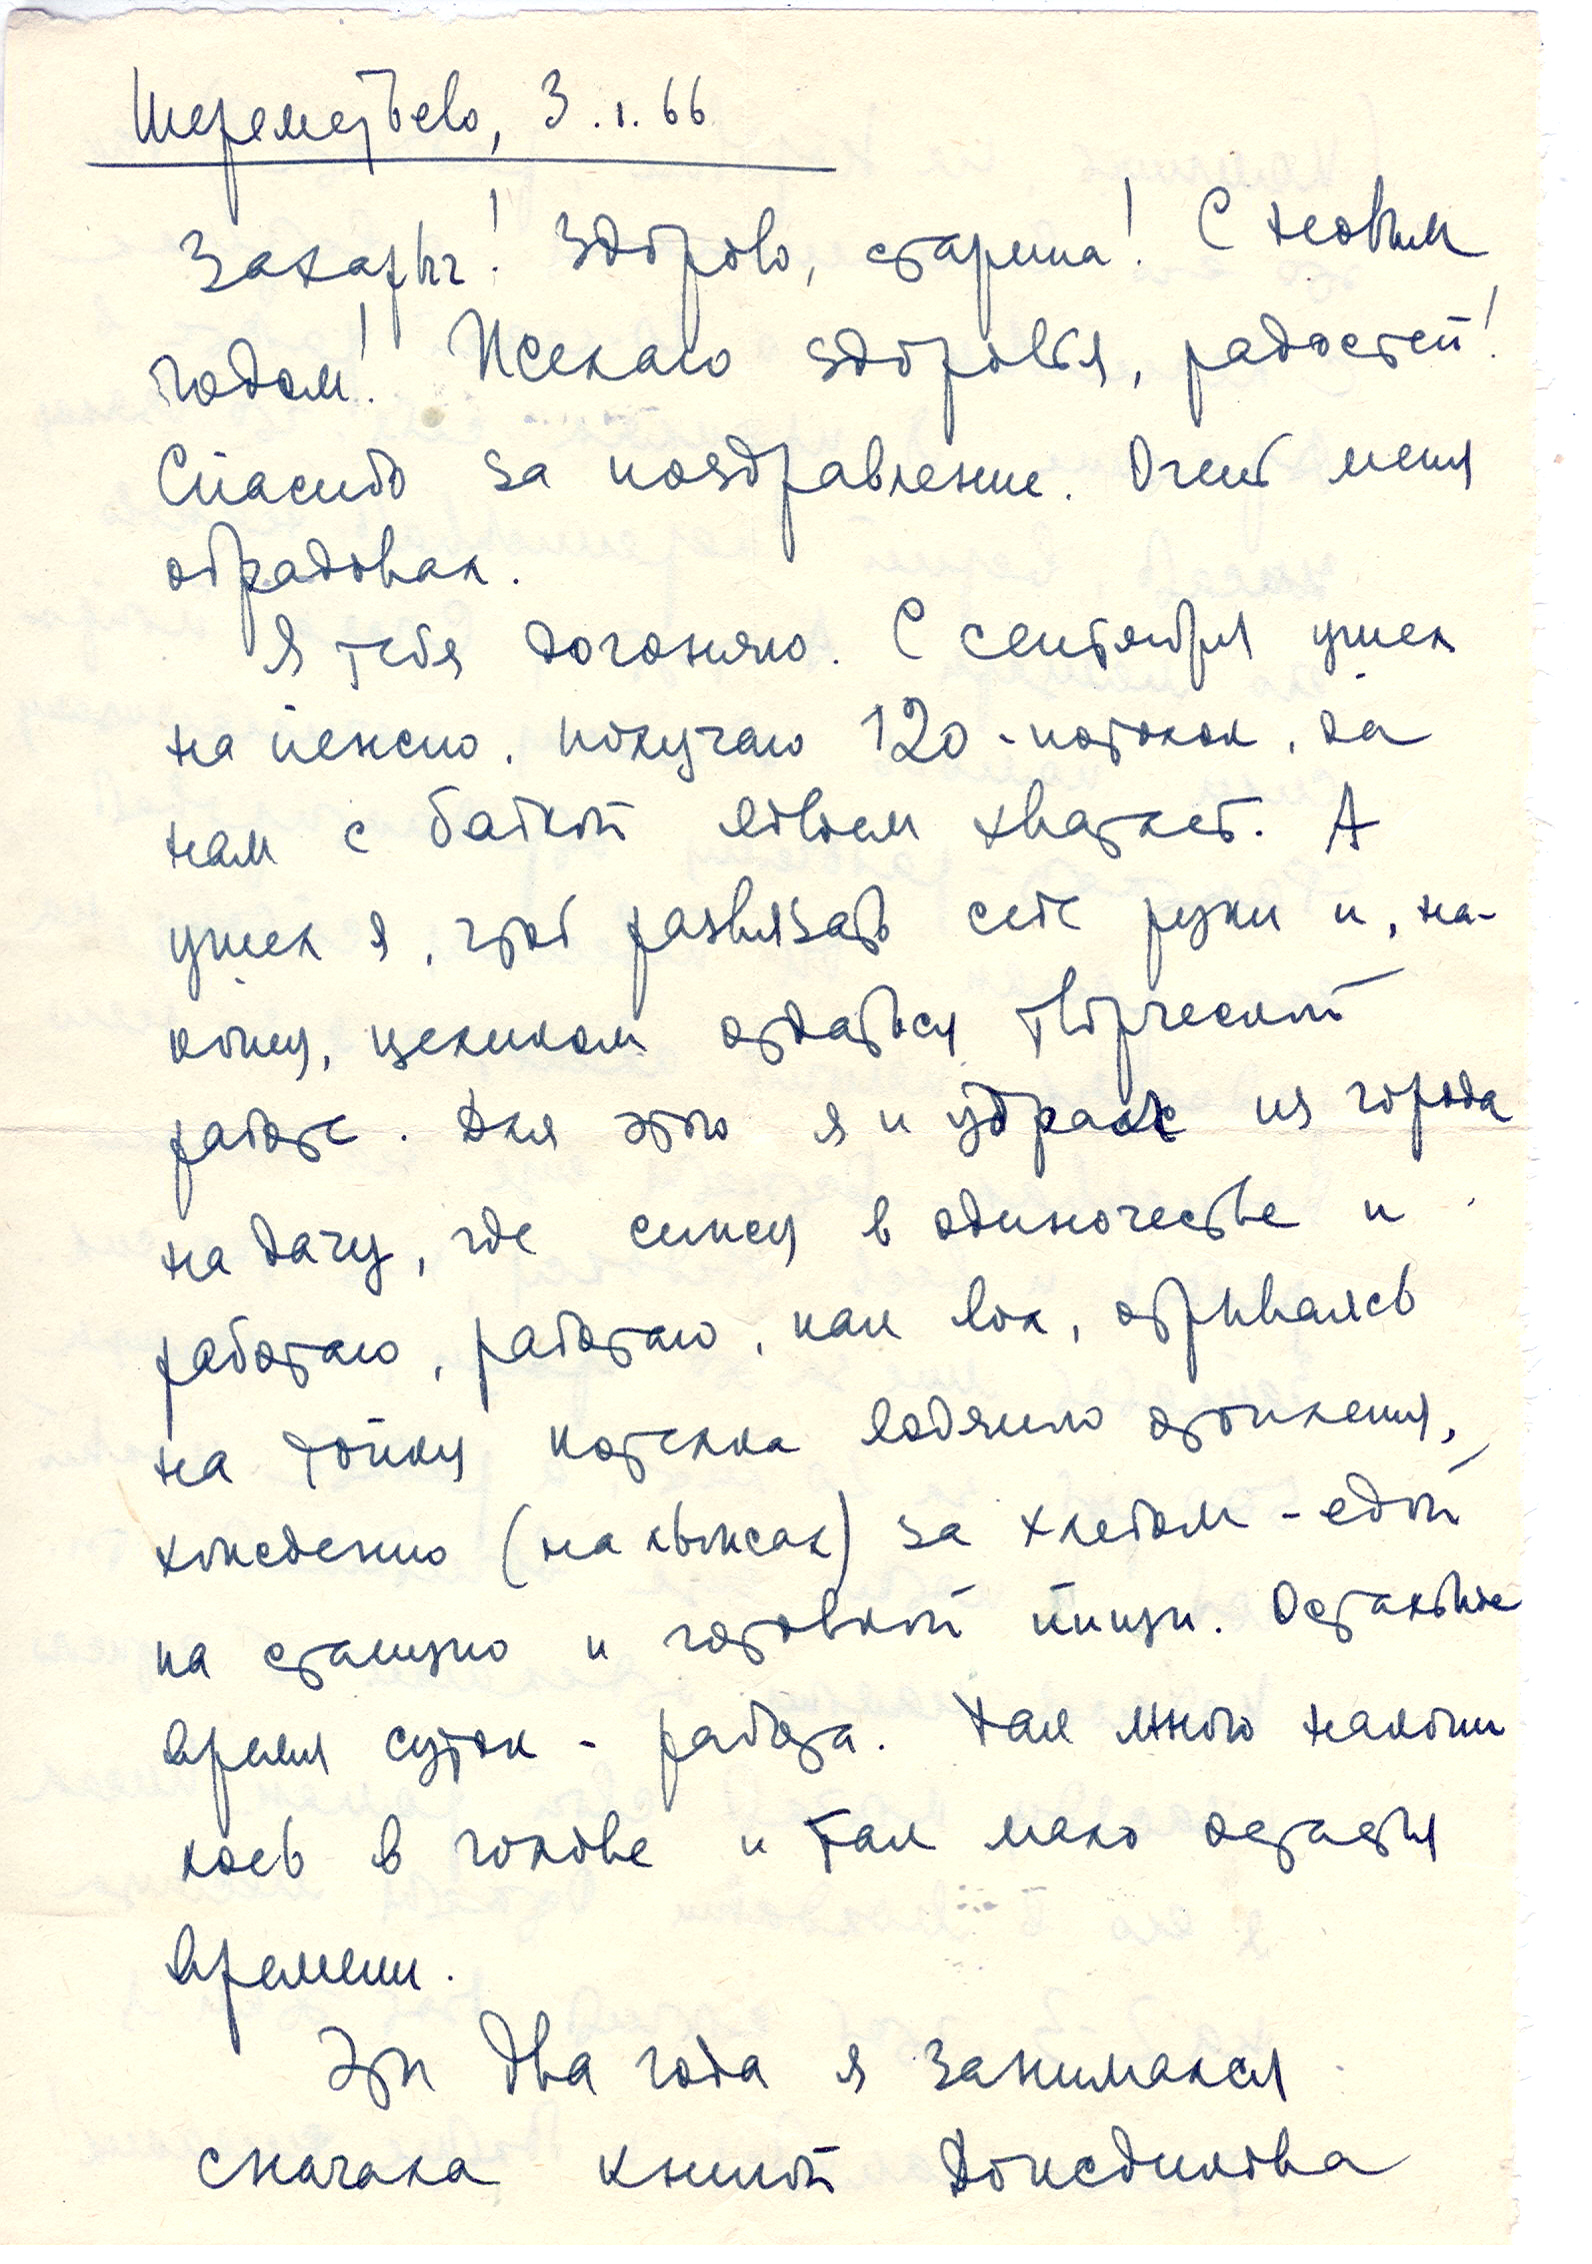 Шереметьево, 3.1.66
Захарыч! Здорово, старина! С новым
годом! Желаю здоровья, радостей!
Спасибо за поздравление. Очень меня
обрадовал.
Я тебя догоняю. С сентября ушел
на пенсию, получаю 120 - потолок, да
нам с бабкой вдвоем хватает. А
ушел я, чтоб развязать себе руки и, на-
конец, целиком отдаться творческой
работе. Для этого я и убрался из города
на дачу, где сижу в одиночестве и
работаю, работаю, как вол, отрываясь
на топку котелка водяного отопления,
хождению (на лыжах) за хлебом - едой
на станцию и готовкой пищи. Остальное
время суток - работа. Так много накопи
лось в голове и так мало остается
времени.
Эти два года я занимался
сначала книгой Дожедикова